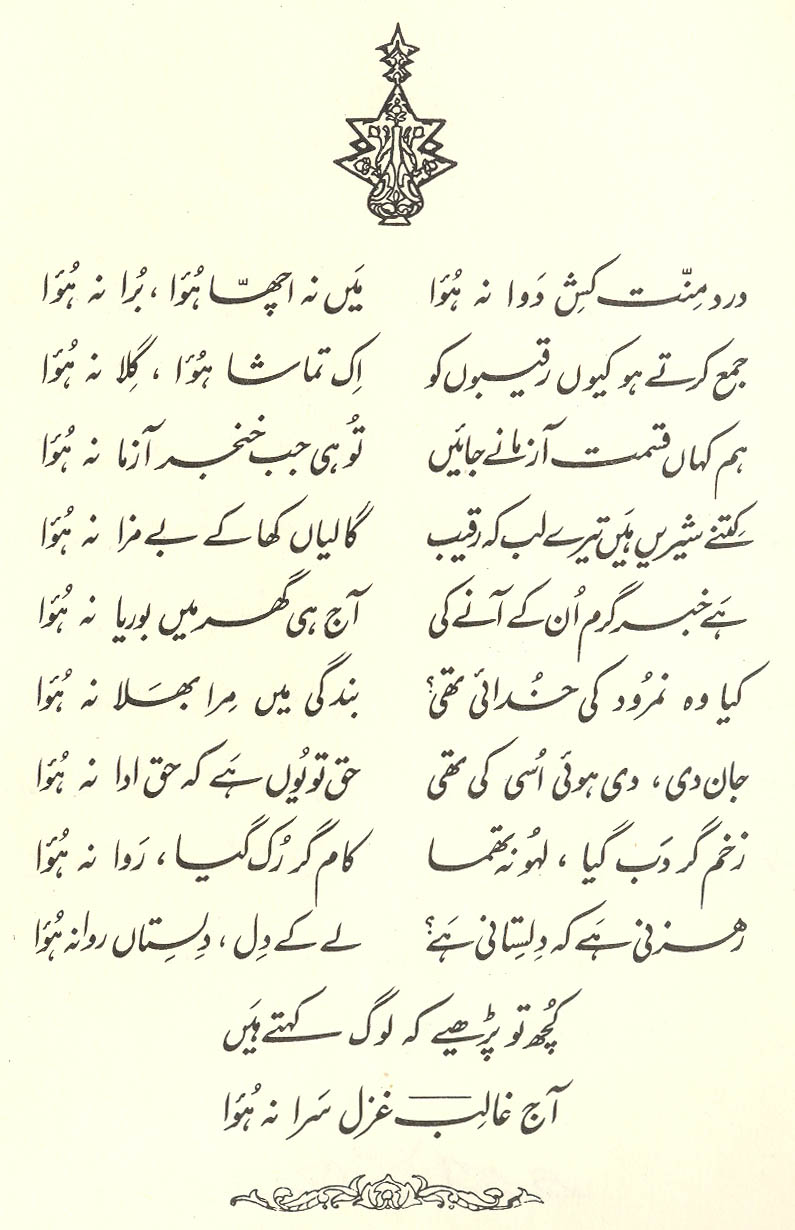 درد مِنّت کشِ دَوا نہ ہُؤا مَیں نہ اچھّا ہُؤا ، بُرا نہ ہُؤا
جمع کرتے ہو کیوں رقیبوں کو اِک تماشا ہُؤا ، گِلا نہ ہُؤا
ہم کہاں قسمت آزمانے جائیں تُو ہی جب خنجر آزما نہ ہُؤا
کِتنے شیریں ہَیں تیرے لب کہ رقیب گالیاں کھا کے بے مزا نہ ہُؤا
ہَے خبر گرم اُن کے آنے کی آج ہی گھر میں بوریا نہ ہُؤا
کیا وہ نمرُود کی خُدائی تھی؟ بندگی میں مِرا بھَلا نہ ہُؤا
جان دی ، دی ہوئی اُسی کی تھی حق تو یُوں ہَے کہ حق ادا نہ ہُؤا
زخم گر دَب گیا ، لہُو نہ تھما کام گر رُک گیا ، رَوا نہ ہُؤا
رھزنی ہَے کہ دِلسِتانی ہَے؟ لے کے دِل ، دِلسِتاں روانہ ہُؤا
کُچھ تو پڑھیے کہ لوگ کہتے ہَیں
آج غالِب غزل سَرا نہ ہُؤا